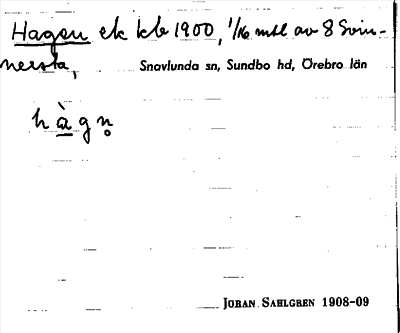 Hagen ek kb 1900, 1/16 mtl av 8 Svin-
nersta,
Snavlunda sn, Sundbo hd, Örebro län
hàgn̥
JÖRAN SAHLGREN 1908-09